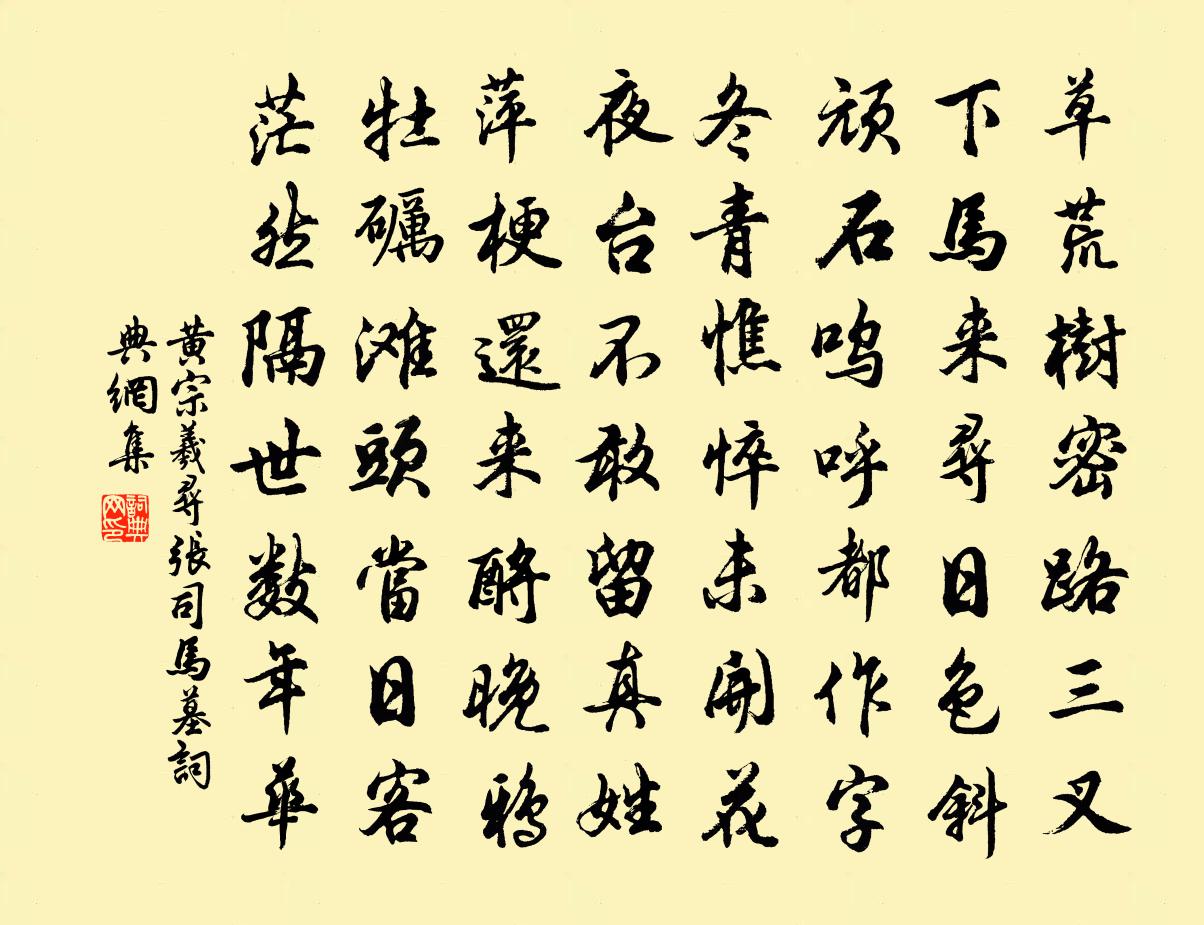 草荒樹密路三叉
下馬来尋日色斜
頑石鳴呼都作字
冬青憔悴未開花
夜台不敢留真姓
萍梗還来酹晚鴉
牡礪滩頭當日客
茫然隔世数年華
黄宗羲尋張司馬墓詞
典網集
詞典
网印